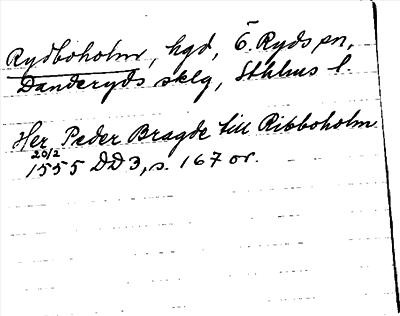 Rydboholm, hgd, Ö. Ryds sn,
Danderyds sklg, Sthlms l.
Her Peder Bragde till Ribboholm
20/2
1555 DD3, s. 167 or.